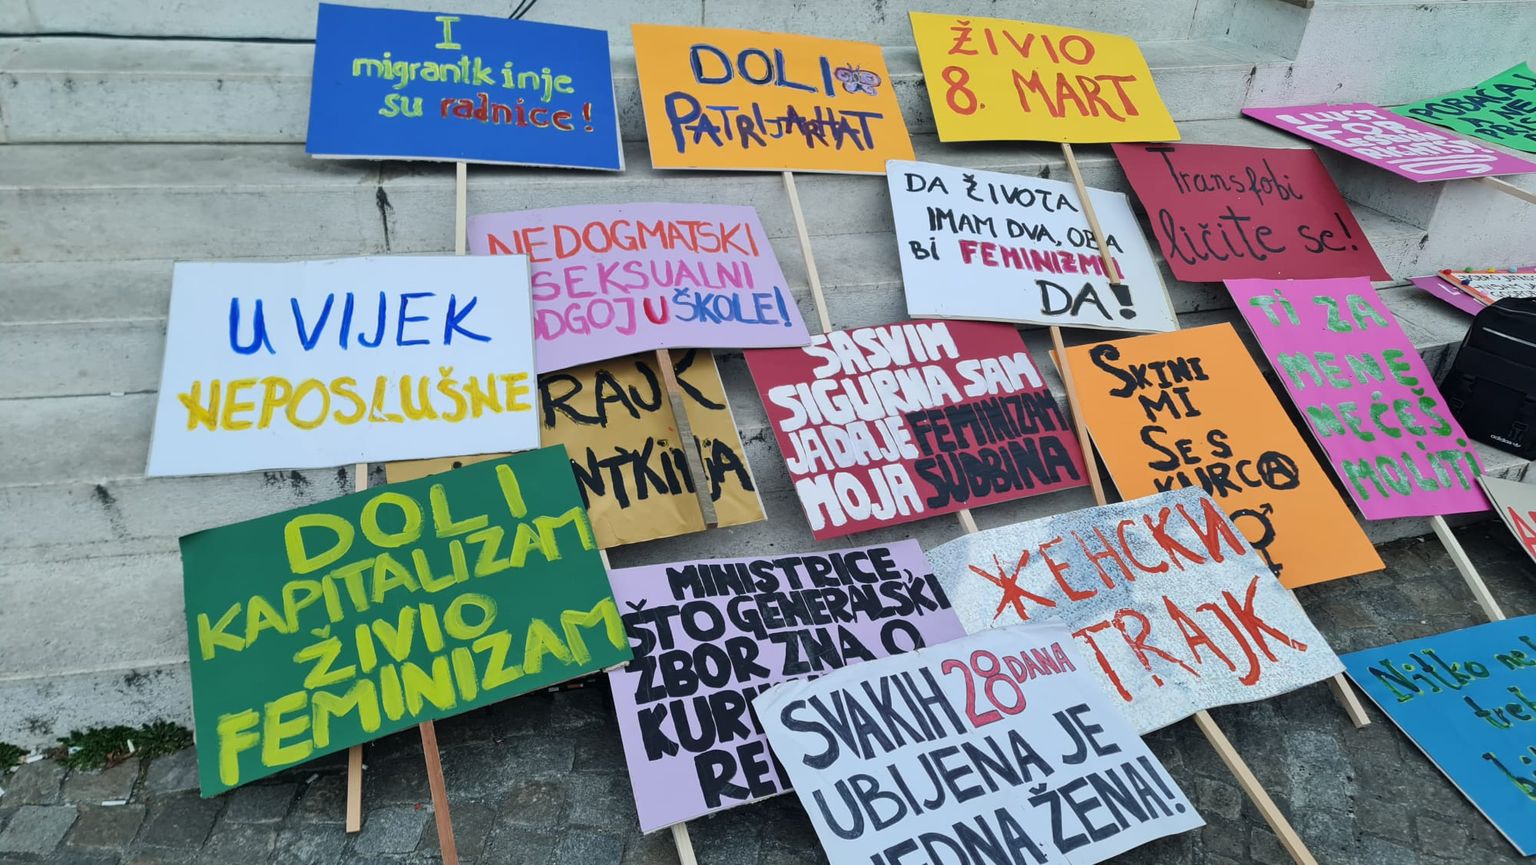 I
migrantkinje
su radnice!
DOLI
PATRIJARHAT
ŽIVIO
8. MART
I LUST
FOR
POBAČAJ
Transfobi
ličite se!
DA ŽIVOTA
IMAM DVA, OBA
BI FEMINIZMU
DA!
NEDOGMATSKI
SEKSUALNI
ODGOJ U ŠKOLE!
UVIJEK
NEPOSLUŠNE
RAJK
NTKINJA
SASVIM
SIGURNA SAM
JADAJE FEMINIZAM
MOJA SUDBINA
SKINI
MI
SE S
KURCA
TI ZA
MENE
NEĆEŠ
MOLITI
DOLI
KAPITALIZAM
ŽIVIO
FEMINIZAM
MINISTRICE,
ŠTO GENERALSKI
ZBOR ZNA O
KURI
RE
ЖЕНСКИ
ТRAJK
SVAKIH 28 DANA
UBIJENA JE
JEDNA ŽENA!
Nitko
adidas